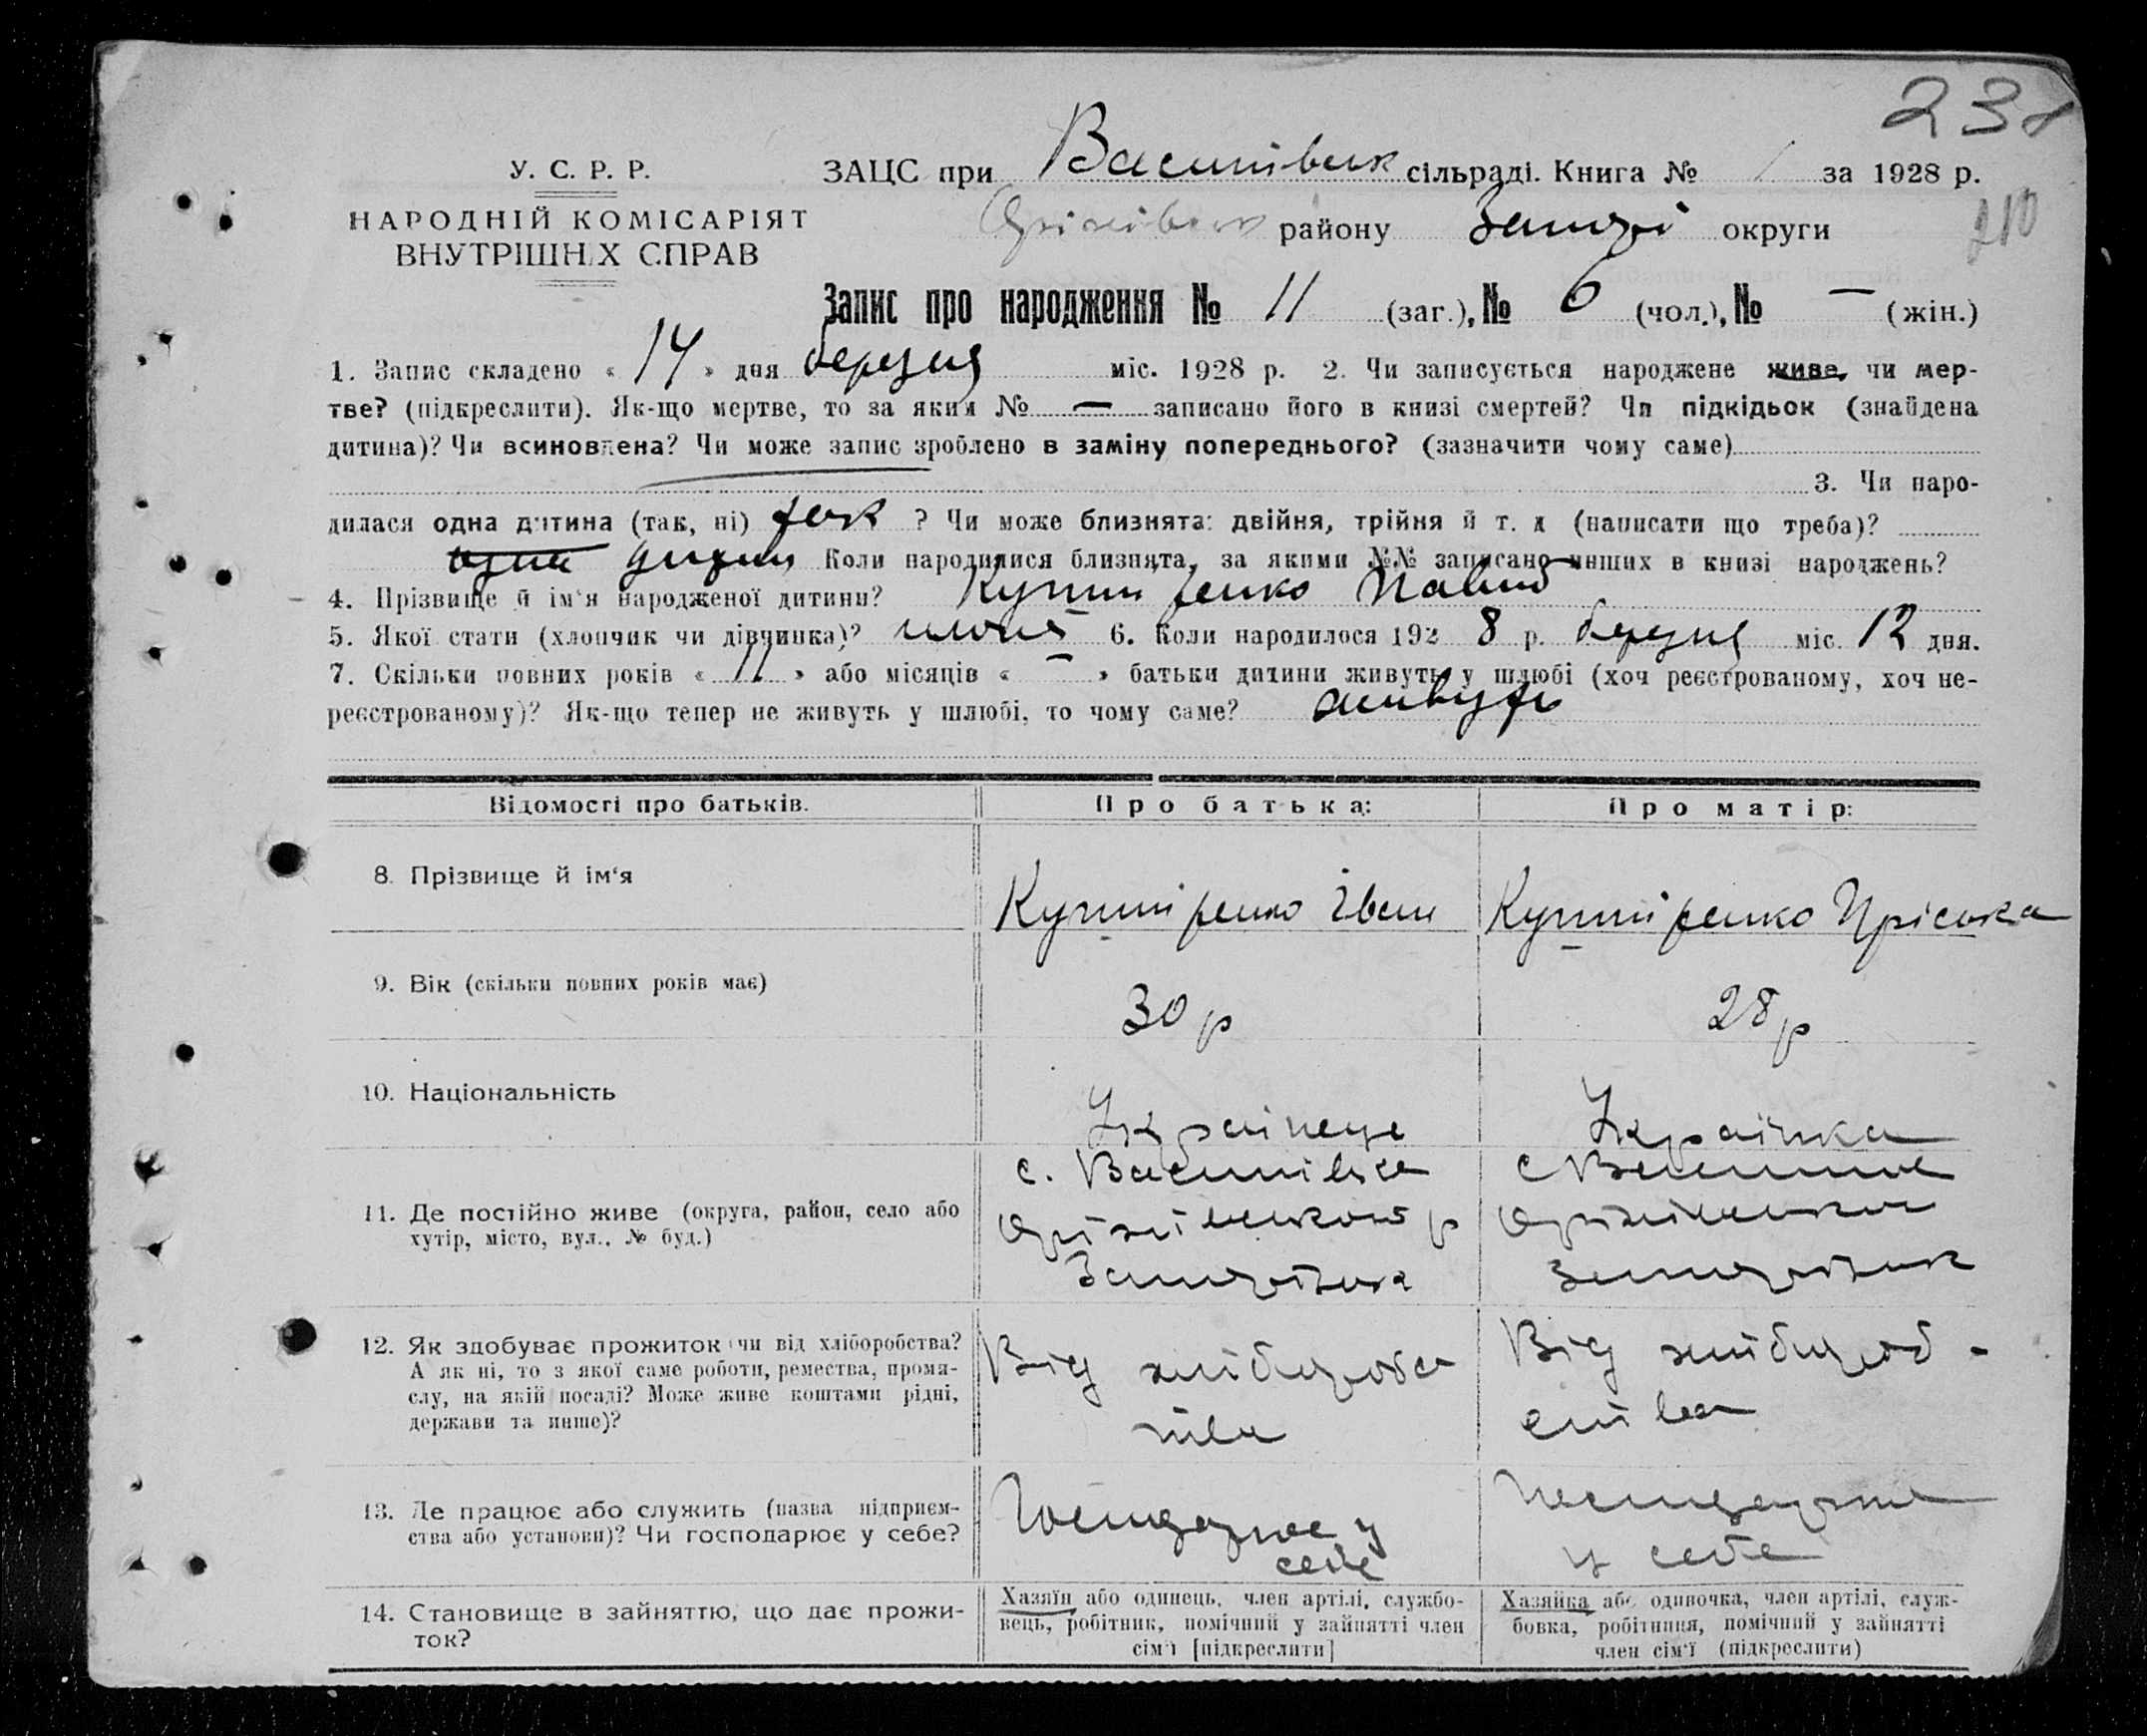 238
У. С. Р. Р.
НАРОДНІЙ КОМІСАРІЯТ
ВНУТРІШНІХ СПРАВ
ЗАЦС при Василівськ сільраді. Книга № 1 за 1928 р.
Оріхівськ району Запорі округи
210
Запис про народження № 11 (заг.), № 6 (чол.), № — (жін.)
1. Запис складено « 14 » дня березня міс. 1928 р. 2. Чи записується народжене живе, чи мер-
тве? (підкреслити). Як-що мертве, то за яким № — записано його в книзі смертей? Чи підкідьок (знайдена
дитина)? Чи всиновлена? Чи може запис зроблено в заміну попереднього? (зазначити чому саме)
3. Чи наро-
дилася одна дитина (так, ні) так ? Чи може близнята: двійня, трійня й т. д (написати що треба)?
одна дитина Коли народилися близнята, за якими №№ записано инших в книзі народжень?
4. Прізвище й ім'я народженої дитини? Павло
5. Якої статі (хлопчик чи дівчинка)? 6. Коли народилося 192 8 р. березня міс. 12 дня.
7. Скільки повних років « 11 » або місяців « — » батьки дитини живуть у шлюбі (хоч реєстрованому, хоч не-
реєстрованому)? Як-що тепер не живуть у шлюбі, то чому саме? живуть
Відомості про батьків. Про батька: Про матір:
8. Прізвище й ім'я Іван Пріська
9. Вік (скільки повних років має) 30 р 28 р
10. Національність Українець Українка
11. Де постійно живе (округа, район, село або
хутір, місто, вул., № буд.)
с. Василівка
Оріхівського р
Запоріжськ
с Василівка
Оріхівського
Запоріжськ
12. Як здобуває прожиток чи від хліборобства?
А як ні, то з якої саме роботи, ремества, промя-
слу, на якій посаді? Може живе коштами рідні,
держави та инше)?
Від хліборобс
тва
Від хлібороб-
ства
13. Де працює або служить (назва підприєм-
ства або установи)? Чи господарює у себе?
Господарює у
себе
Господарює
у себе
14. Становище в зайняттю, що дає прожи-
ток?
Хазяїн або одинець, член артілі, службо-
вець, робітник, помічний у зайнятті член
сім'ї [підкреслити]
Хазяйка або одиночка, член артілі, служ-
бовка, робітниця, помічний у зайнятті
член сім'ї (підкреслити)